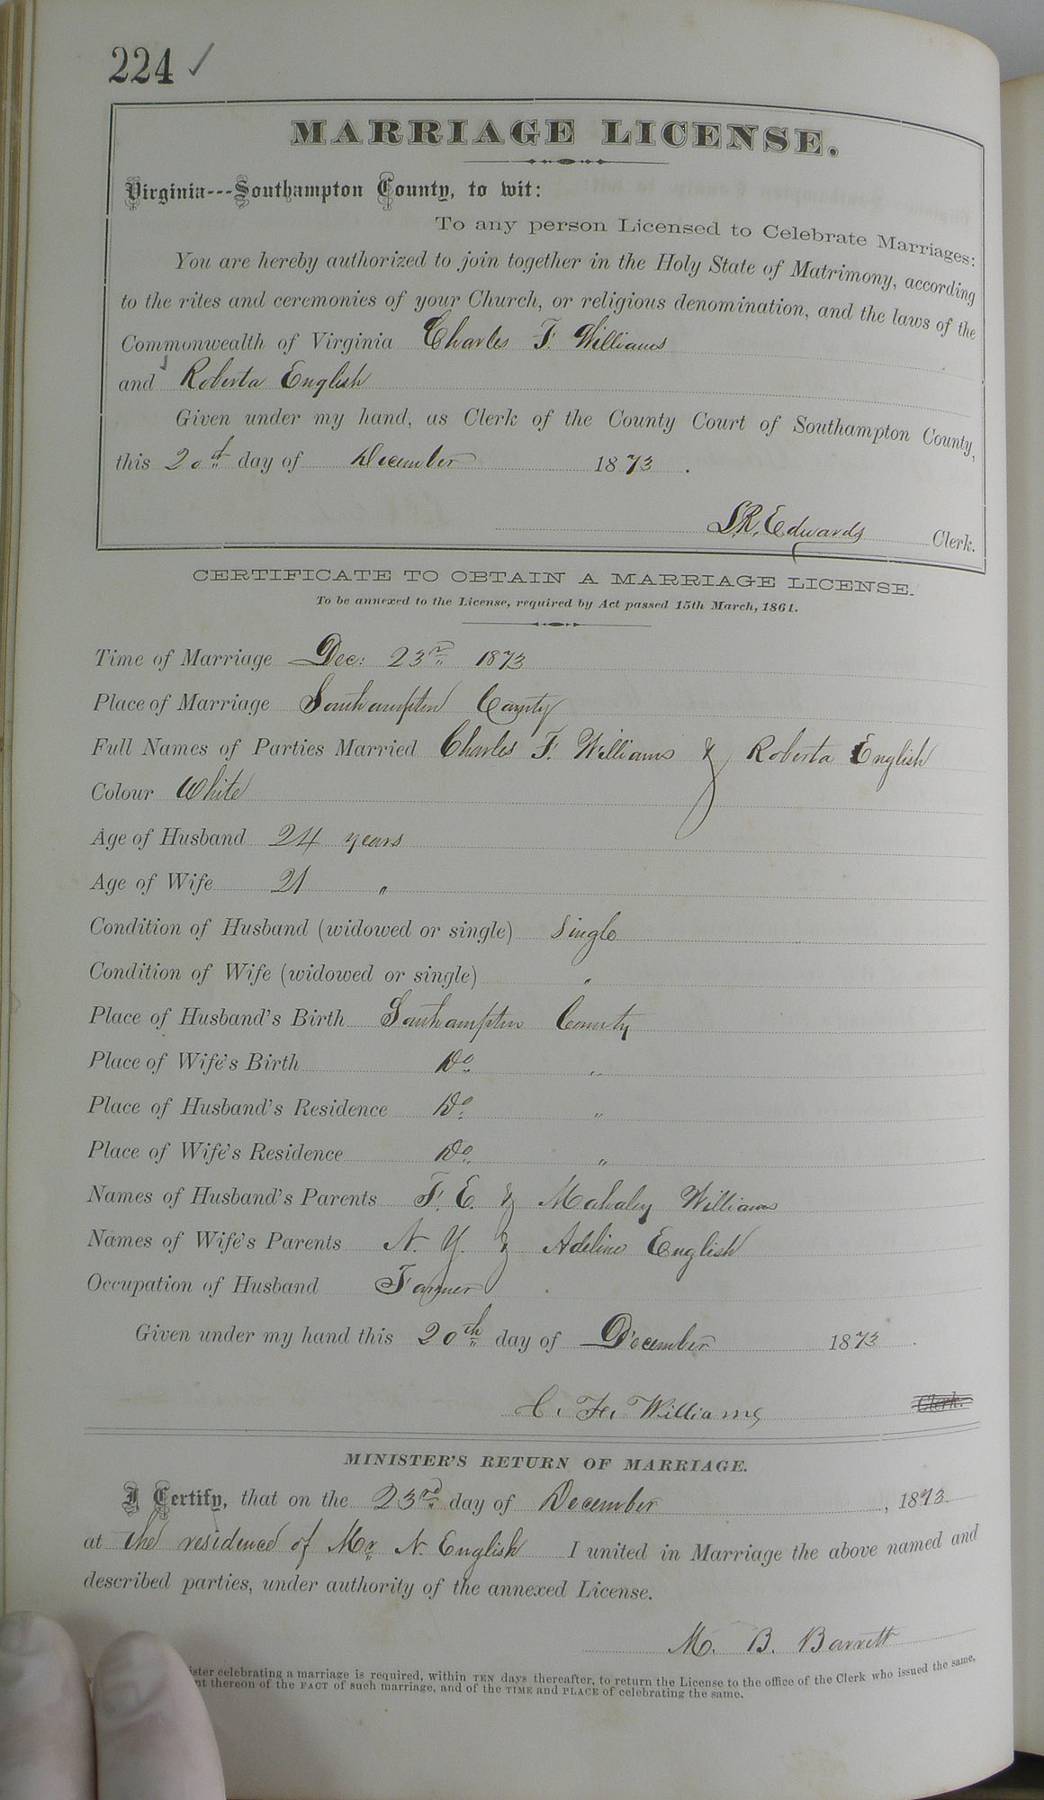 224 ✓
MARRIAGE LICENSE.
Virginia---Southampton County, to wit:
To any person Licensed to Celebrate Marriages:
You are hereby authorized to join together in the Holy State of Matrimony, according
to the rites and ceremonies of your Church, or religious denomination, and the laws of the
Commonwealth of Virginia Charles F. Williams
and Roberta English
Given under my hand, as Clerk of the County Court of Southampton County,
this 20th day of December 1873.
L.R. Edwards Clerk.
CERTIFICATE TO OBTAIN A MARRIAGE LICENSE.
To be annexed to the License, required by Act passed 15th March, 1861.
Time of Marriage Dec: 23rd 1873
Place of Marriage Southampton County
Full Names of Parties Married Charles F. Williams & Roberta English
Colour White
Age of Husband 24 years
Age of Wife 21 "
Condition of Husband (widowed or single) Single
Condition of Wife (widowed or single) "
Place of Husband's Birth Southampton County
Place of Wife's Birth Do "
Place of Husband's Residence Do "
Place of Wife's Residence Do "
Names of Husband's Parents F. E. & Mahaley Williams
Names of Wife's Parents N. Y. & Adeline English
Occupation of Husband Farmer
Given under my hand this 20th day of December 1873.
C. F. Williams Clerk.
MINISTER'S RETURN OF MARRIAGE.
I Certify, that on the 23rd day of December, 1873
at the residence of Mr N. English I united in Marriage the above named and
described parties, under authority of the annexed License.
M. B. Barrett
celebrating a marriage is required, within TEN days thereafter, to return the License to the office of the Clerk who issued the same,
thereon of the FACT of such marriage, and of the TIME and PLACE of celebrating the same.